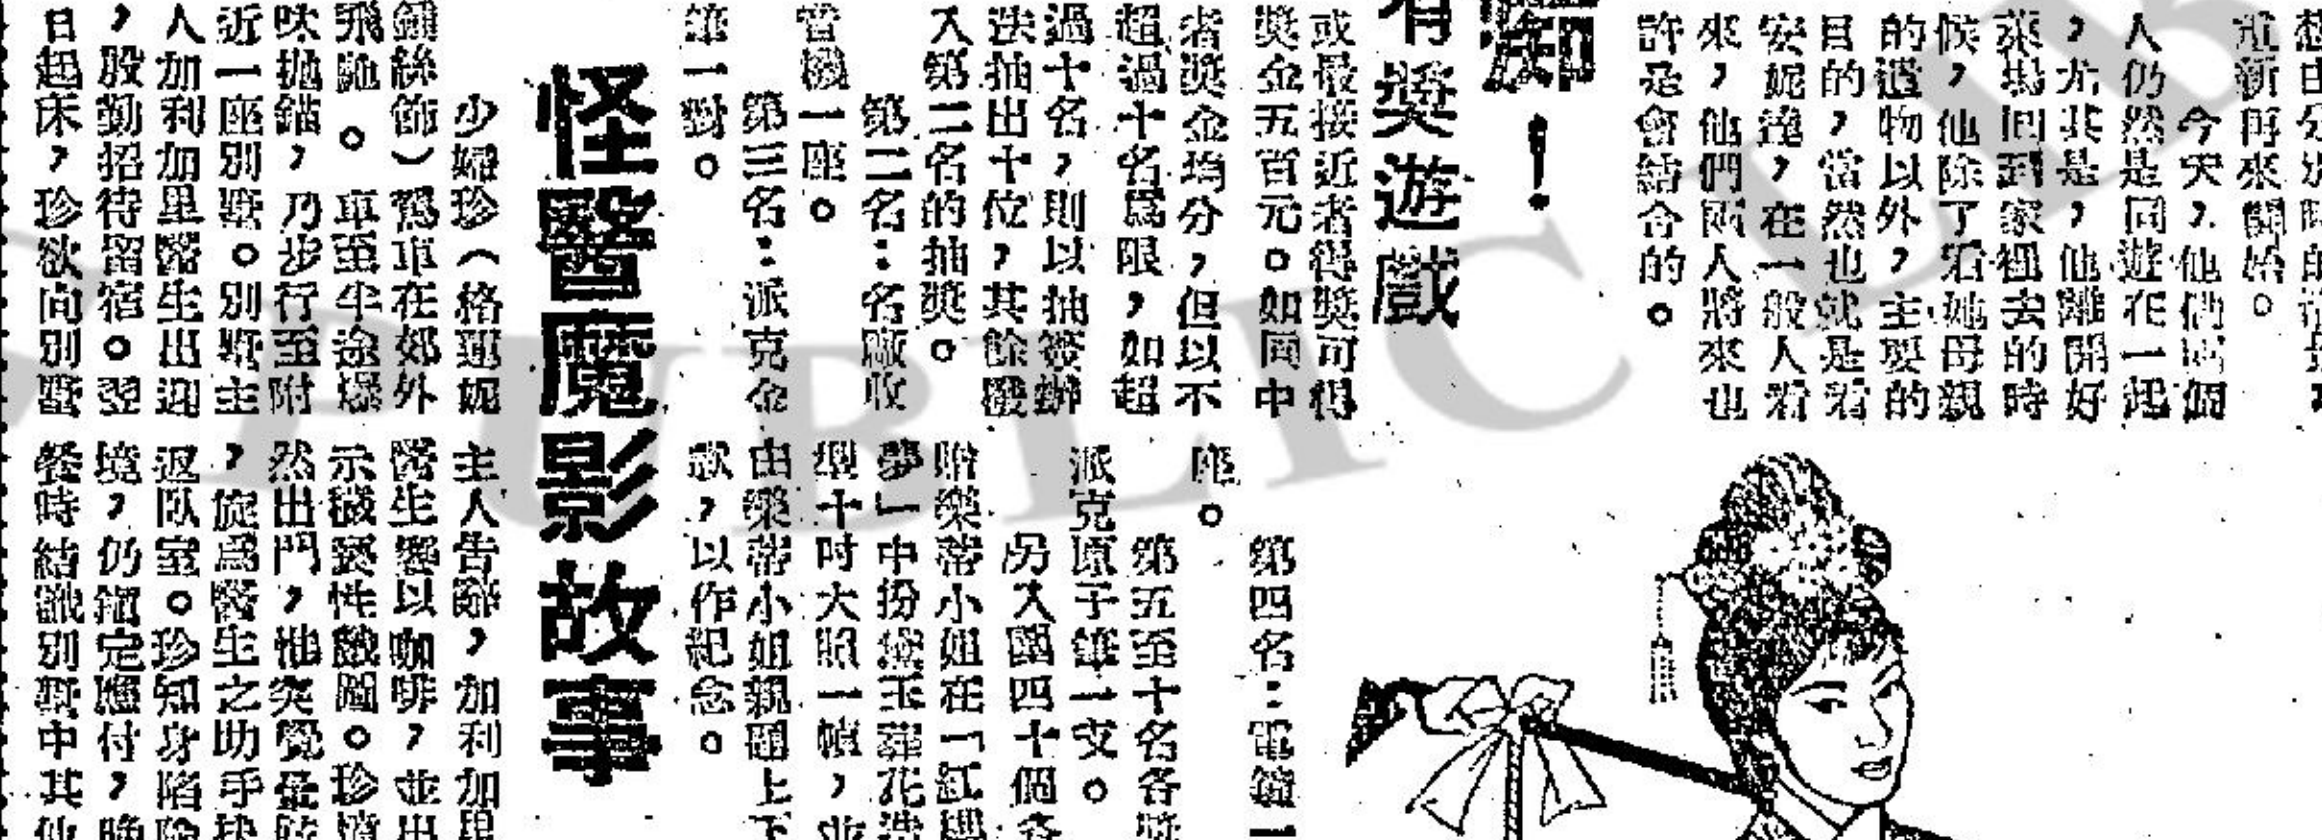 重新再來開始。
今天，他倆兩個
人仍然是同遊在一起
，尤其是，他離開好
萊塢回到家裡去的時
候，他除了看她母親
的遺物以外，主要的
目的，當然也就是看
安妮達，在一般人看
來，他們兩人將來也
許是會結合的。
痴！
有獎遊戲
或最接近者得獎可得
獎金五百元。如同中
者獎金均分，但以不
超過十名爲限，如超
過十名，則以抽簽辦
法抽出十位，其餘撥
入第二名的抽獎。
第二名：名廠收
音機一座。
第三名：派克金
筆一對。
第四名：電鐘一
座。
第五至十名各獎
派克原子筆一支。
另入圍四十個各
贈樂蒂小姐在「紅樓
夢」中扮黛玉葬花造
型十吋大照一幀，並
由樂蒂小姐親題上下
款，以作紀念。
怪醫魔影故事
少婦珍（格蓮妮
鍾絲飾）駕車在郊外
飛馳。車至半途爆
呔拋錨，乃步行至附
近一座別墅。別墅主
人加利加里醫生出迎
，殷勤招待留宿。翌
日起床，珍欲向別墅
主人告辭，加利加里
醫生饗以咖啡，並出
示穢褻性戲圖。珍憤
然出門，他突覺暈眩
，旋爲醫生之助手扶
返臥室。珍知身陷險
境，仍鎮定應付，晚
餐時結識別墅中其他